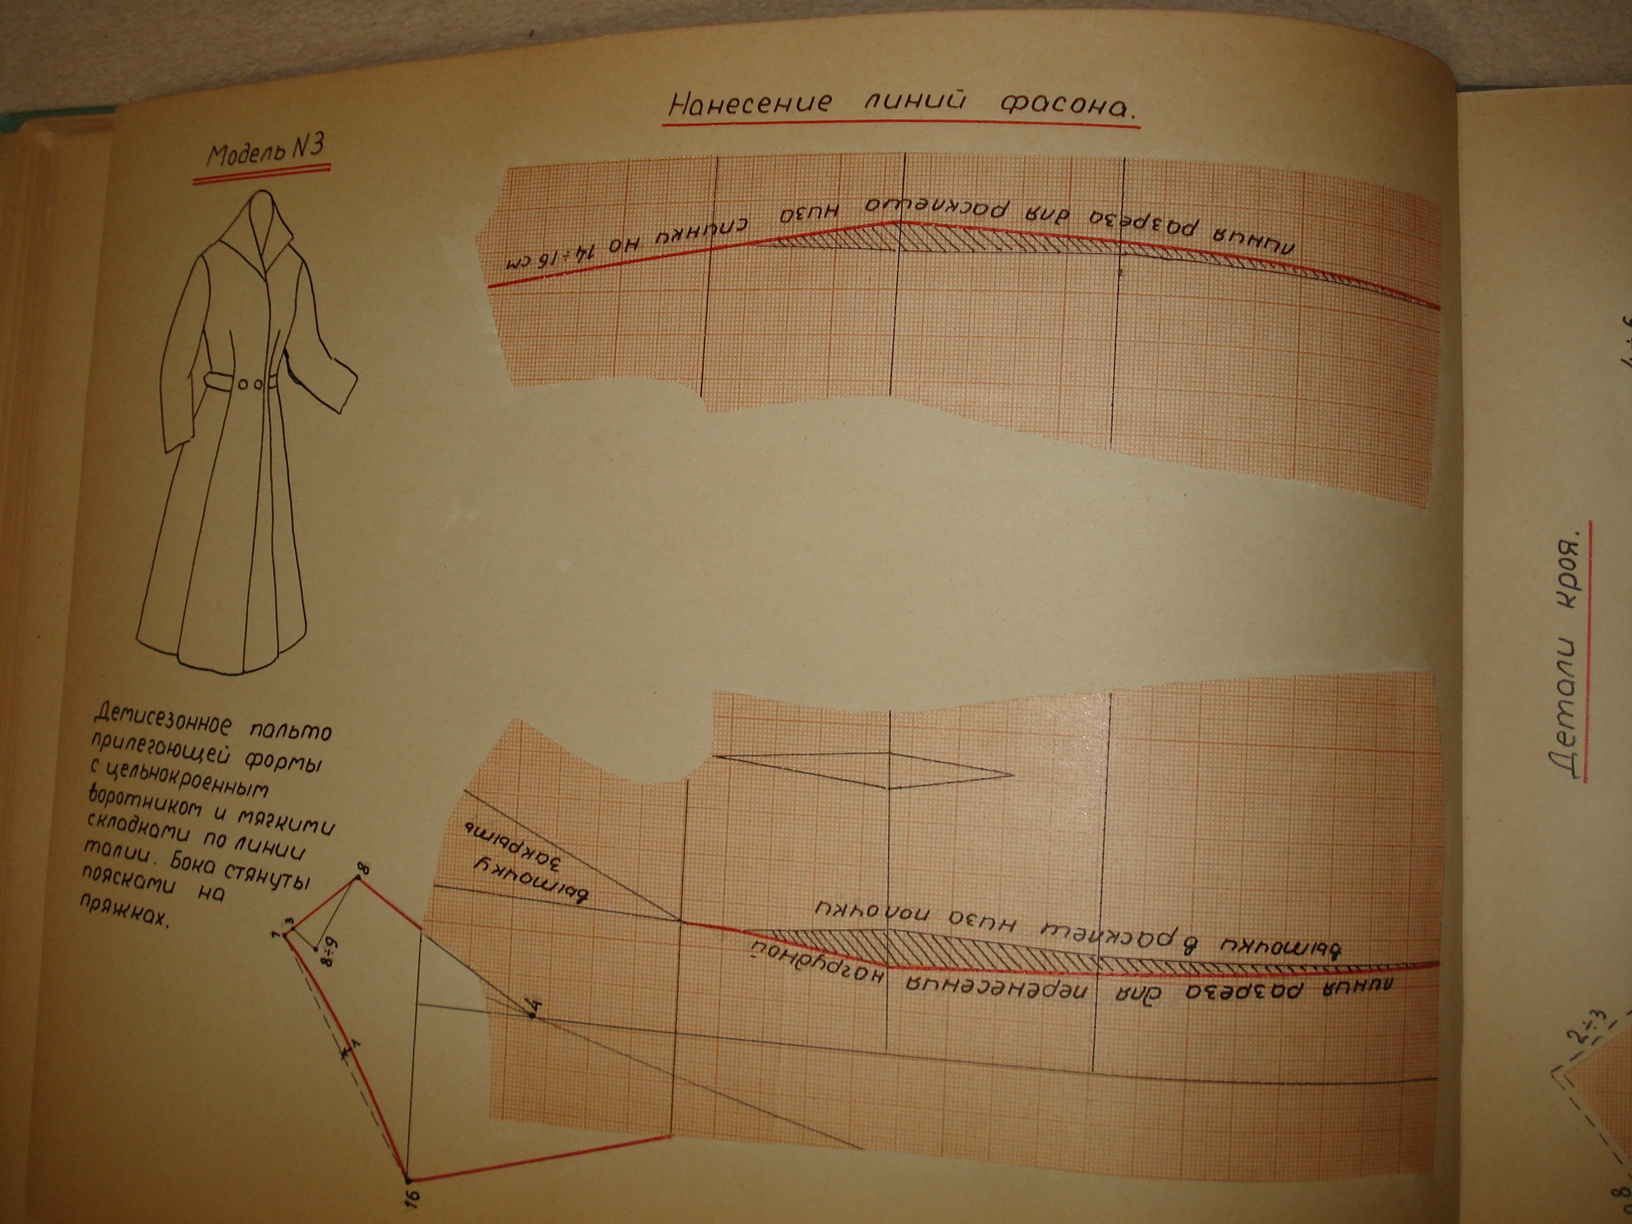 Нанесение линий фасона.
Модель N3
линия разреза для расклеша низа спинки на 14÷16 см
Демисезонное пальто
прилегающей формы
с цельнокроенным
воротником и мягкими
складками по линии
талии. Бока стянуты
поясками на
пряжках.
выточку
закрыть
линия разреза для перенесения нагрудной
выточки в расклеш низа полочки
8
3
1
8÷9
4
1
16
Детали кроя.
2÷3
8